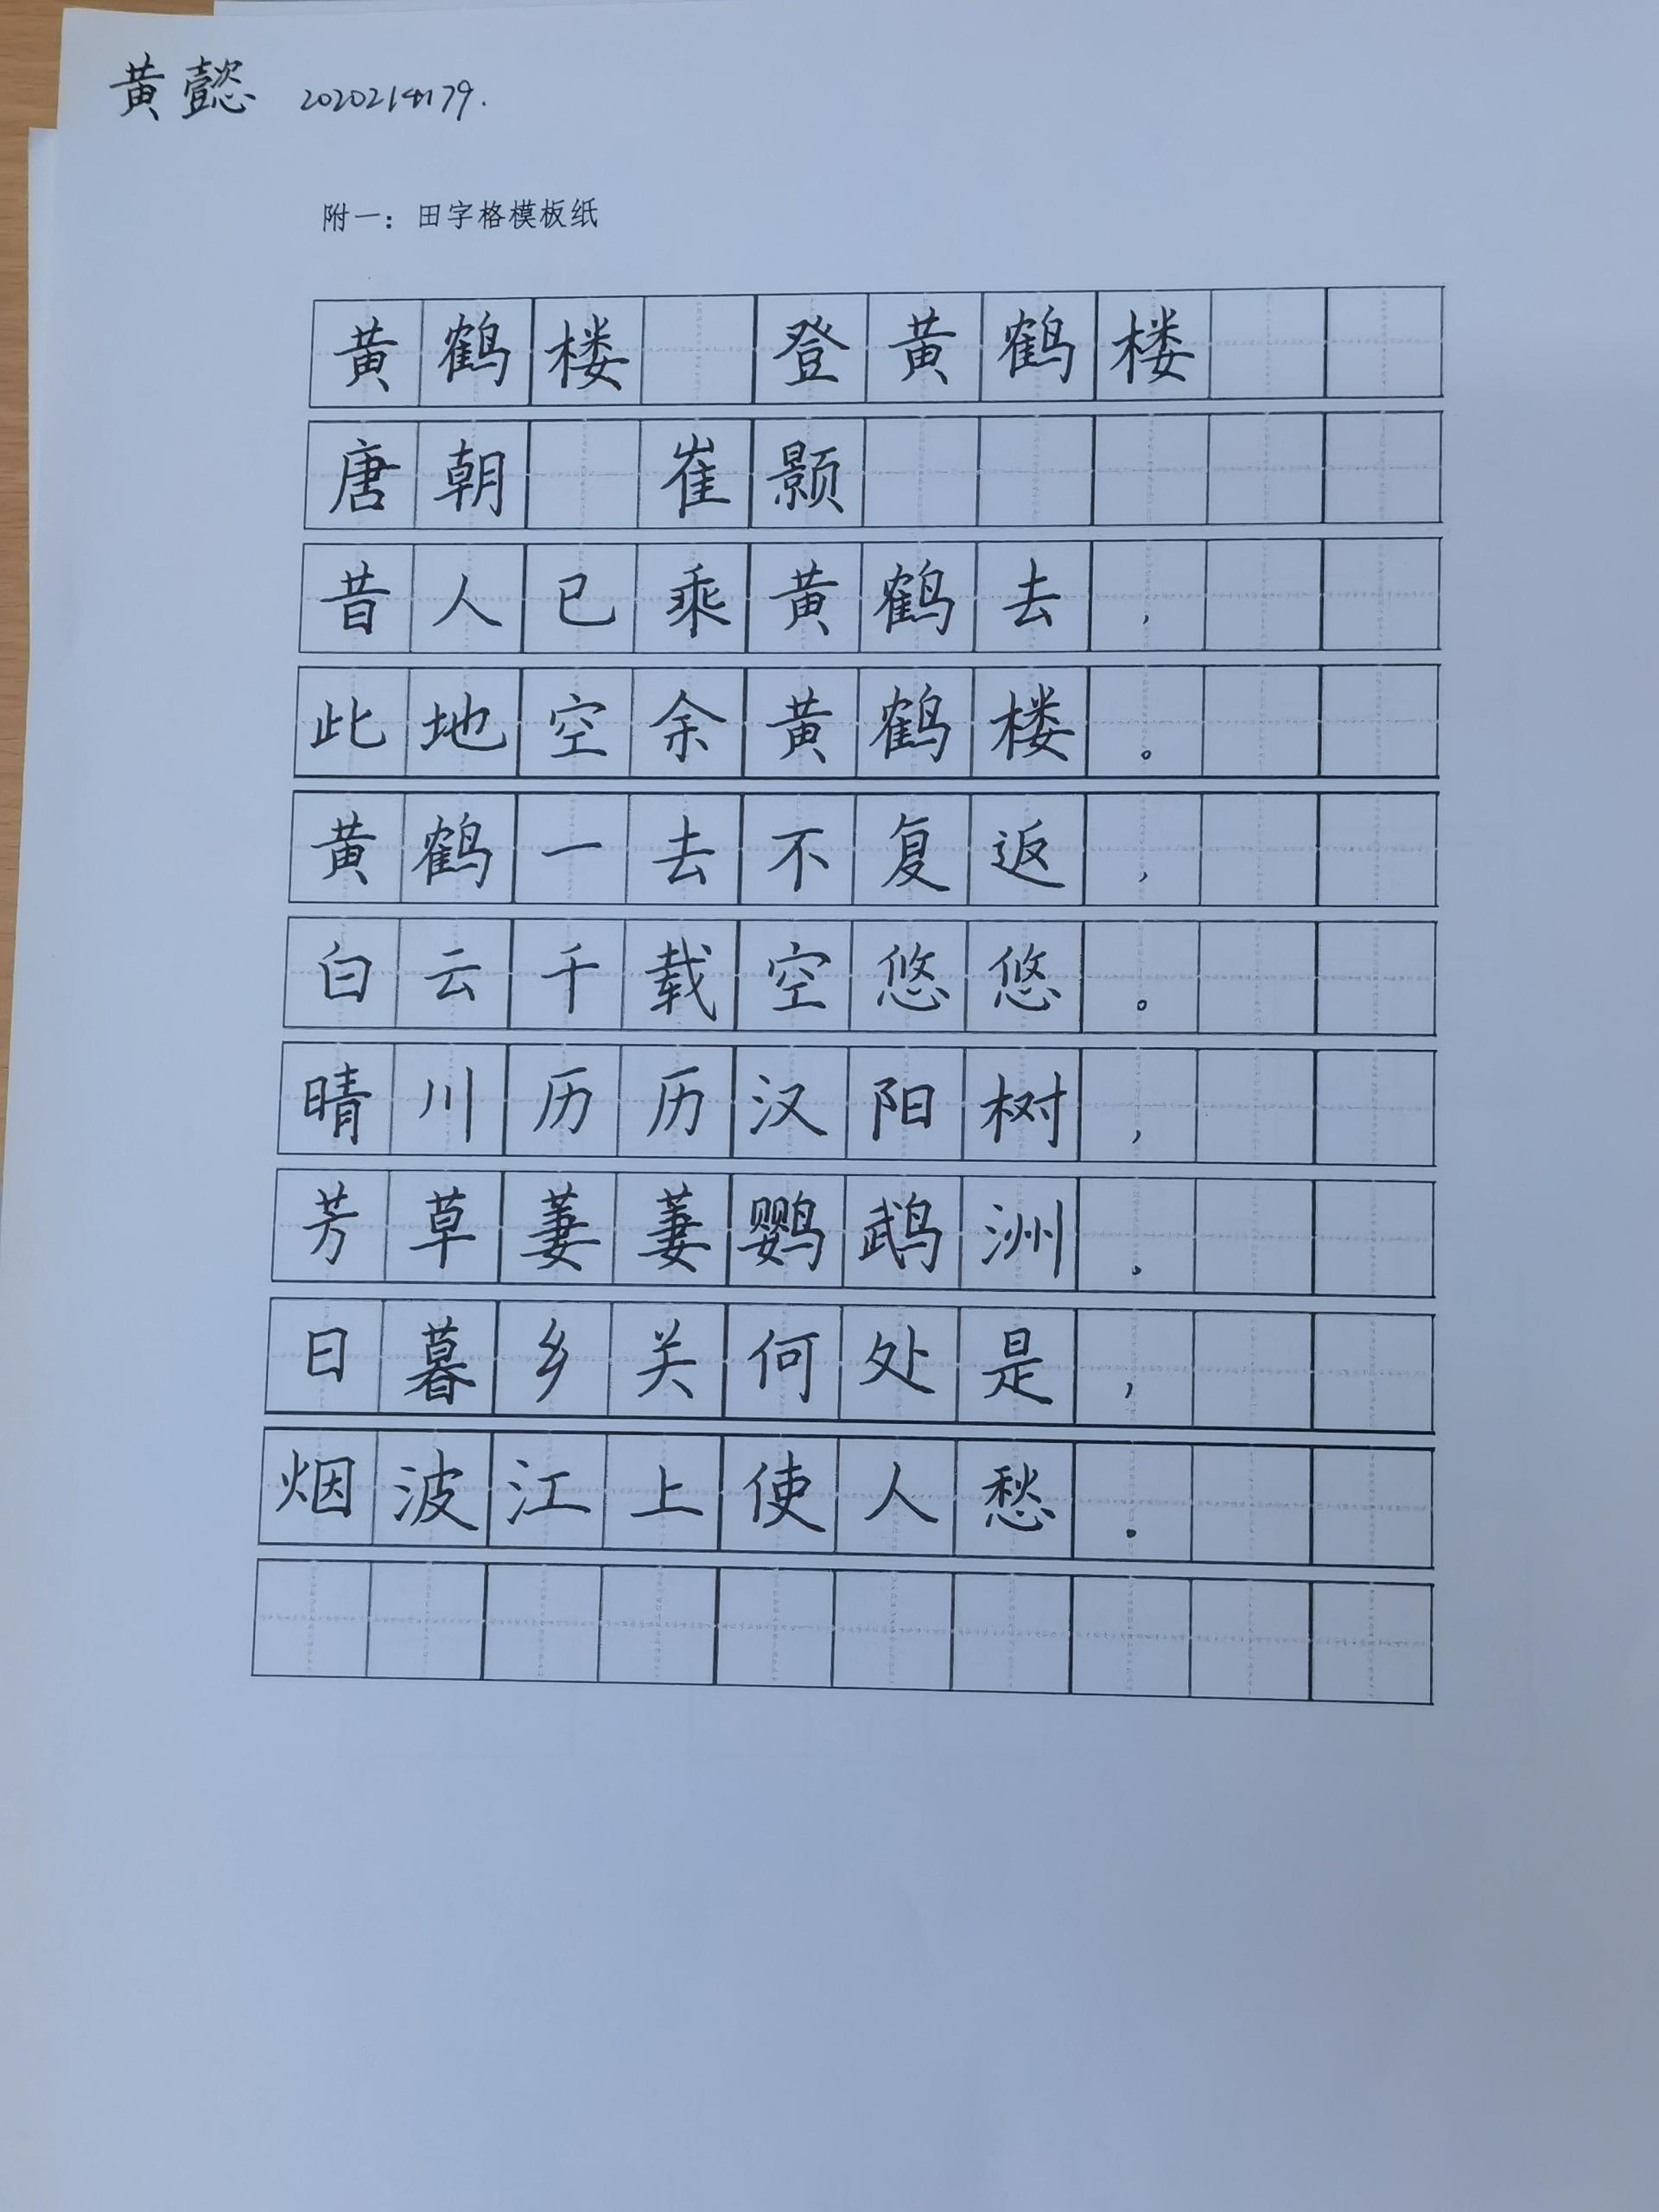 黄懿 2020214179.
附一：田字格模板纸
黄鹤楼 登黄鹤楼
唐朝 崔颢
昔人已乘黄鹤去，
此地空余黄鹤楼。
黄鹤一去不复返，
白云千载空悠悠。
晴川历历汉阳树，
芳草萋萋鹦鹉洲。
日暮乡关何处是，
烟波江上使人愁.